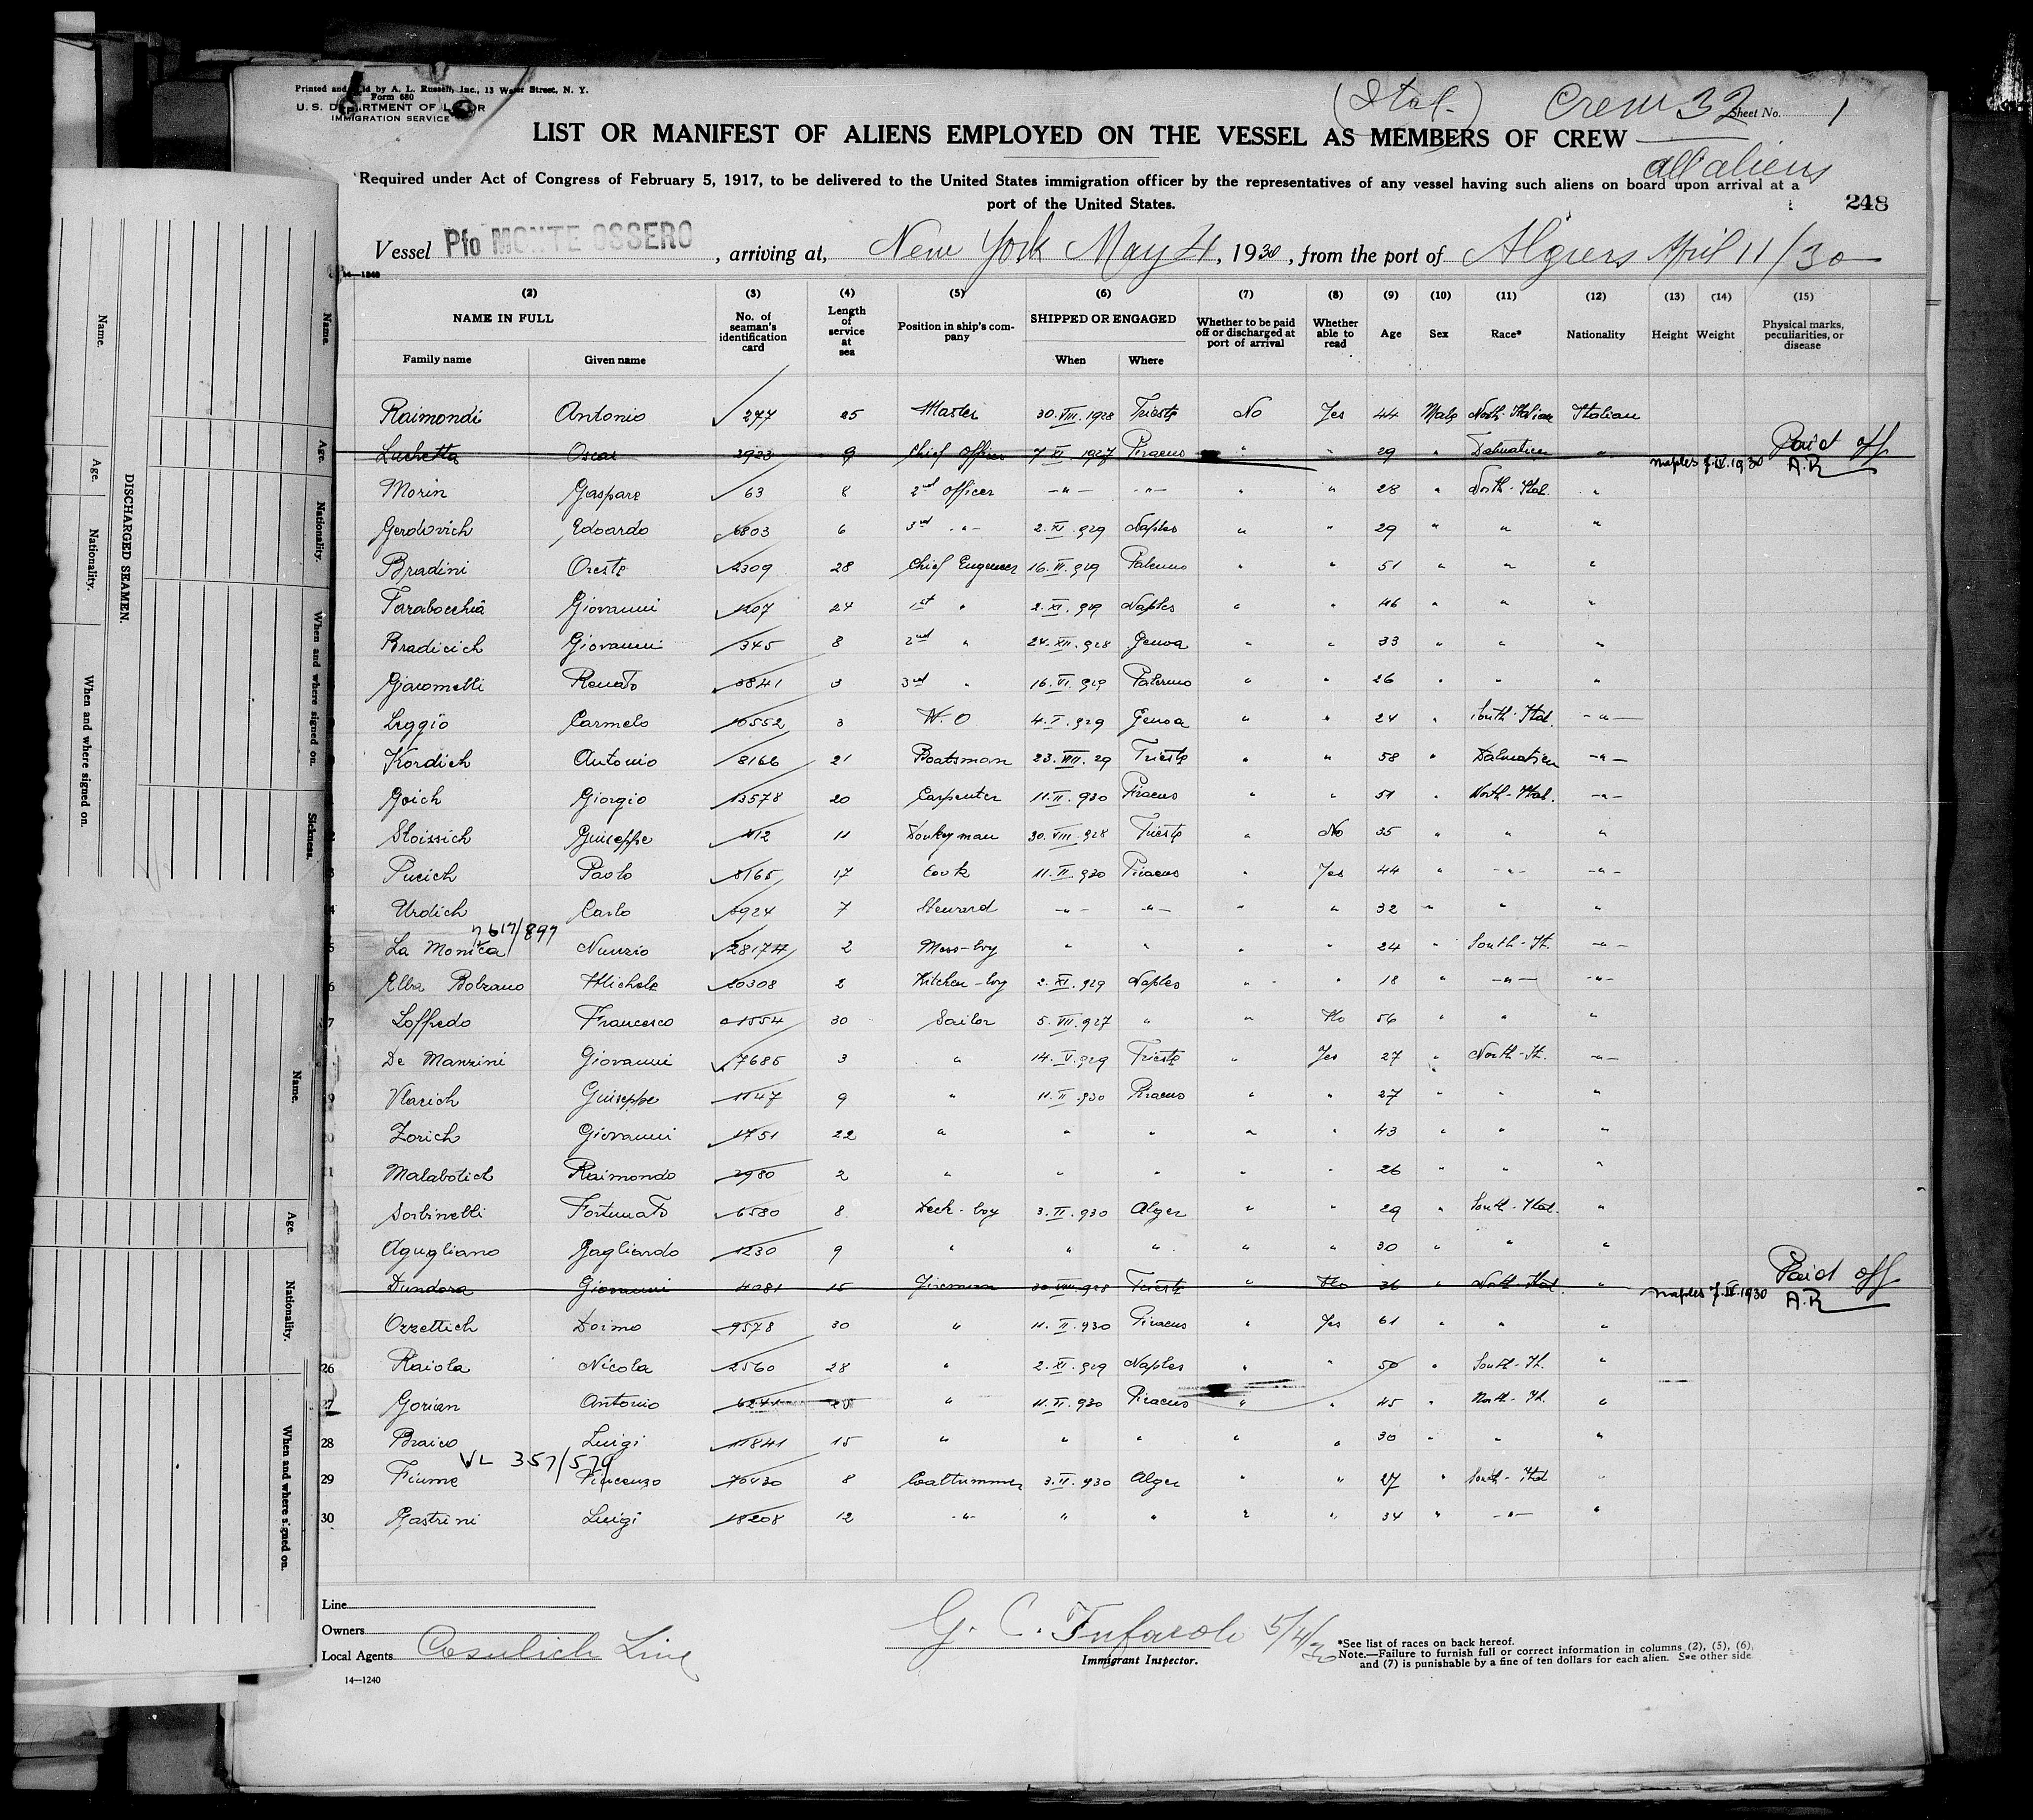 Printed and sold by A. L. Russell, Inc., 13 Water Street, N. Y.
Form 680
U. S. DEPARTMENT OF LABOR
IMMIGRATION SERVICE
(Ital.) Crew 32 Sheet No. 1
LIST OR MANIFEST OF ALIENS EMPLOYED ON THE VESSEL AS MEMBERS OF CREW
all aliens
Required under Act of Congress of February 5, 1917, to be delivered to the United States immigration officer by the representatives of any vessel having such aliens on board upon arrival at a
port of the United States.
248
Vessel Pfo MONTE OSSERO, arriving at, New York May 4, 1930, from the port of Algiers April 11/30
14—1240
(2) (3) (4) (5) (6) (7) (8) (9) (10) (11) (12) (13) (14) (15)
NAME IN FULL No. of seaman's identification card Length of service at sea Position in ship's company SHIPPED OR ENGAGED Whether to be paid off or discharged at port of arrival Whether able to read Age Sex Race* Nationality Height Weight Physical marks, peculiarities, or disease
Family name Given name When Where
Raimondi Antonio 277 25 Master 30.VIII.1928 Trieste No Yes 44 Male North-Italian Italian
Luchetta Oscar 2923 9 Chief Officer 7 XI 1927 Piraeus " " 29 " Dalmatien " Naples 7.IV.1930 Paid off A.R
Morin Gaspare 63 8 2nd Officer -"- -"- " " 28 " North-Ital. "
Gerdovich Edoardo 6803 6 3rd -"- 2.XI.929 Naples " " 29 " " "
Bradini Oreste 2309 28 Chief Engineer 16.VI.929 Palermo " " 51 " " "
Tarabocchia Giovanni 1207 24 1st " 2.XI.929 Naples " " 46 " " "
Bradicich Giovanni 345 8 2nd " 24.XII.928 Genoa " " 33 " " "
Giacomelli Renato 3841 3 3rd " 16.VI.929 Palermo " " 26 " " "
Leggio Carmelo 10552 3 W.O 4.I.929 Genoa " " 24 " South-Ital. -"-
Kordich Antonio 8166 21 Boatsman 23.VIII.29 Trieste " " 58 " Dalmatien -"-
Goich Giorgio 13578 20 Carpenter 11.II.930 Piraeus " " 51 " North-Ital. -"-
Stoissich Guiseppe 412 11 Donkeyman 30.VIII.928 Trieste " No 35 " " "
Pucich Paolo 8165 17 Cook 11.II.930 Piraeus " Yes 44 " -"- -"-
Urdich Carlo 6924 7 Steward -"- -"- " " 32 " " "
617/899
La Monica Nunzio 28174 2 Mess-boy " " " " 24 " South-It. -"-
Elba Bolzano Michele 20308 2 Kitchen-boy 2.XI.929 Naples " " 18 " -"- -"-
Loffredo Francesco 1554 30 Sailor 5.VII.927 " " No 56 " " "
De Manzini Giovanni 7685 3 " 14.V.929 Trieste " Yes 27 " North-It. -"-
Vlacich Guiseppe 1147 9 " 11.II.930 Piraeus " " 27 " " "
Zorich Giovanni 1751 22 " " " " " 43 " " "
Malabotich Raimondo 2980 2 " " " " " 26 " " "
Sorbinelli Fortunato 6580 8 Deck-boy 3.II.930 Alger " " 29 " South-Ital. "
Agugliano Gagliardo 1230 9 " " " " " 30 " " "
Dundora Giovanni 4081 15 Fireman 30 VIII 928 Trieste " No 36 " North-Ital. " Naples 7.IV.1930 Paid off A.R
Ozzettich Doimo 9578 30 " 11.II.930 Piraeus " Yes 61 " " "
26 Raiola Nicola 2560 28 " 2.XI.929 Naples " " 50 " South-It. "
27 Gorian Antonio 6241 " 11.II.930 Piraeus " " 45 " North-It. "
28 Braico Luigi 11841 15 " " " " " 30 " " "
VL 357/579
29 Fiume Vincenzo 70430 8 Coaltrimmer 3.II.930 Alger " " 27 " South-Ital "
30 Gastrini Luigi 18208 12 -"- " " " " 34 " -"- "
Line
Owners
Local Agents Cosulich Line
G. C. Tufarolo 5/4/30
Immigrant Inspector.
*See list of races on back hereof.
Note.—Failure to furnish full or correct information in columns (2), (5), (6),
and (7) is punishable by a fine of ten dollars for each alien. See other side.
14—1240
DISCHARGED SEAMEN.
Name. Age. Nationality. When and where signed on.
Name. Age. Nationality. When and where signed on. Sickness.
Name. Age. Nationality. When and where signed on.